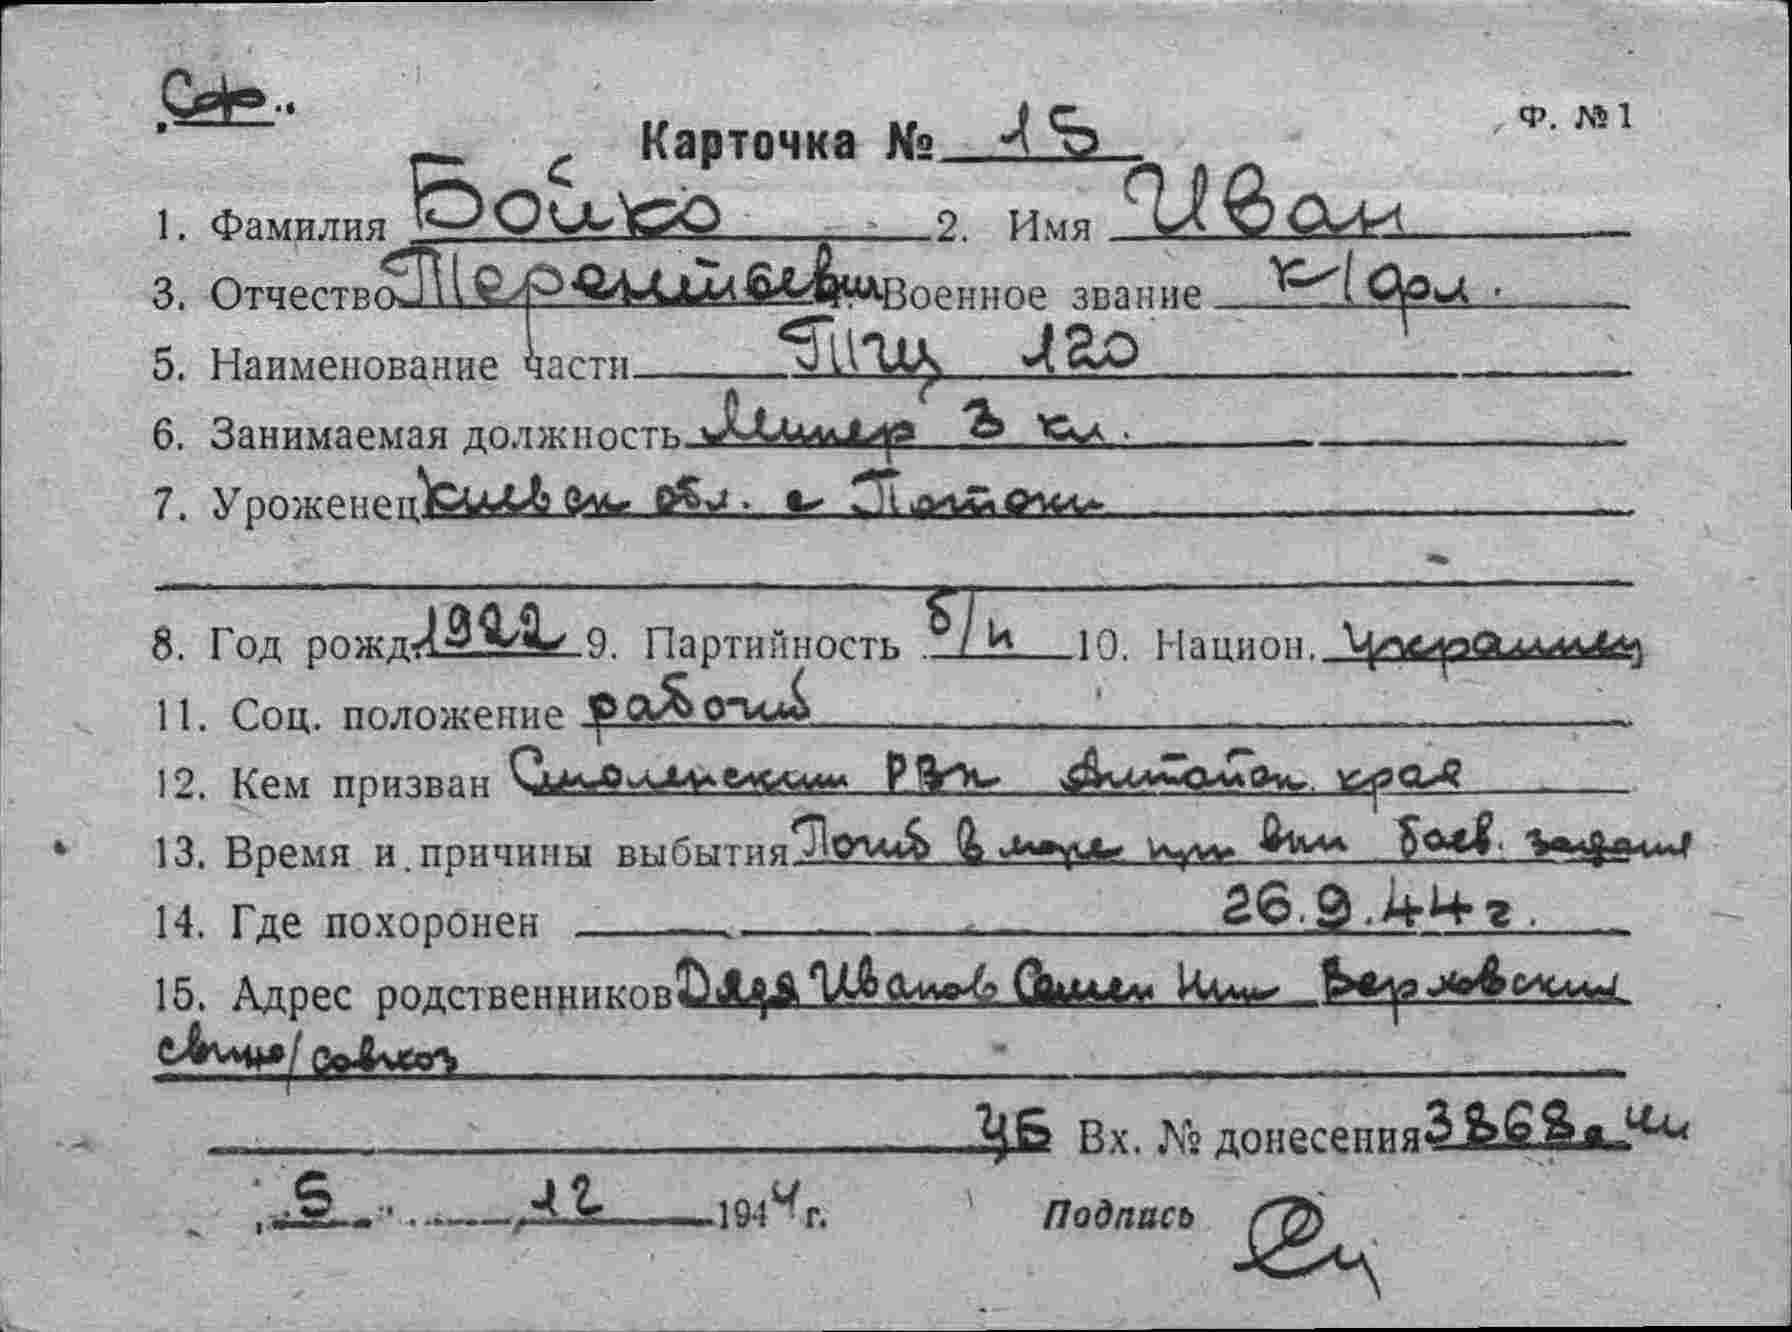 Ф. №1
Карточка № 15
1. Фамилия Бойко 2. Имя Иван
3. Отчество Терентьевич Военное звание к-1 арт.
5. Наименование части Тщ 120
6. Занимаемая должность Минер 3 кл.
7. Уроженец Киевск обл. с Потоки
8. Год рожд. 1922 9. Партийность б/п 10. Национ. Украинец
11. Соц. положение рабочий
12. Кем призван Смоленским РВК Алтайск. края
13. Время и причины выбытия Погиб в море при вып боев. задания
14. Где похоронен 26.9.44 г.
15. Адрес родственников Дядя Иванов Семен Верховский
совхоз
Вх. № донесения 3868
5 12 1944 г. Подпись